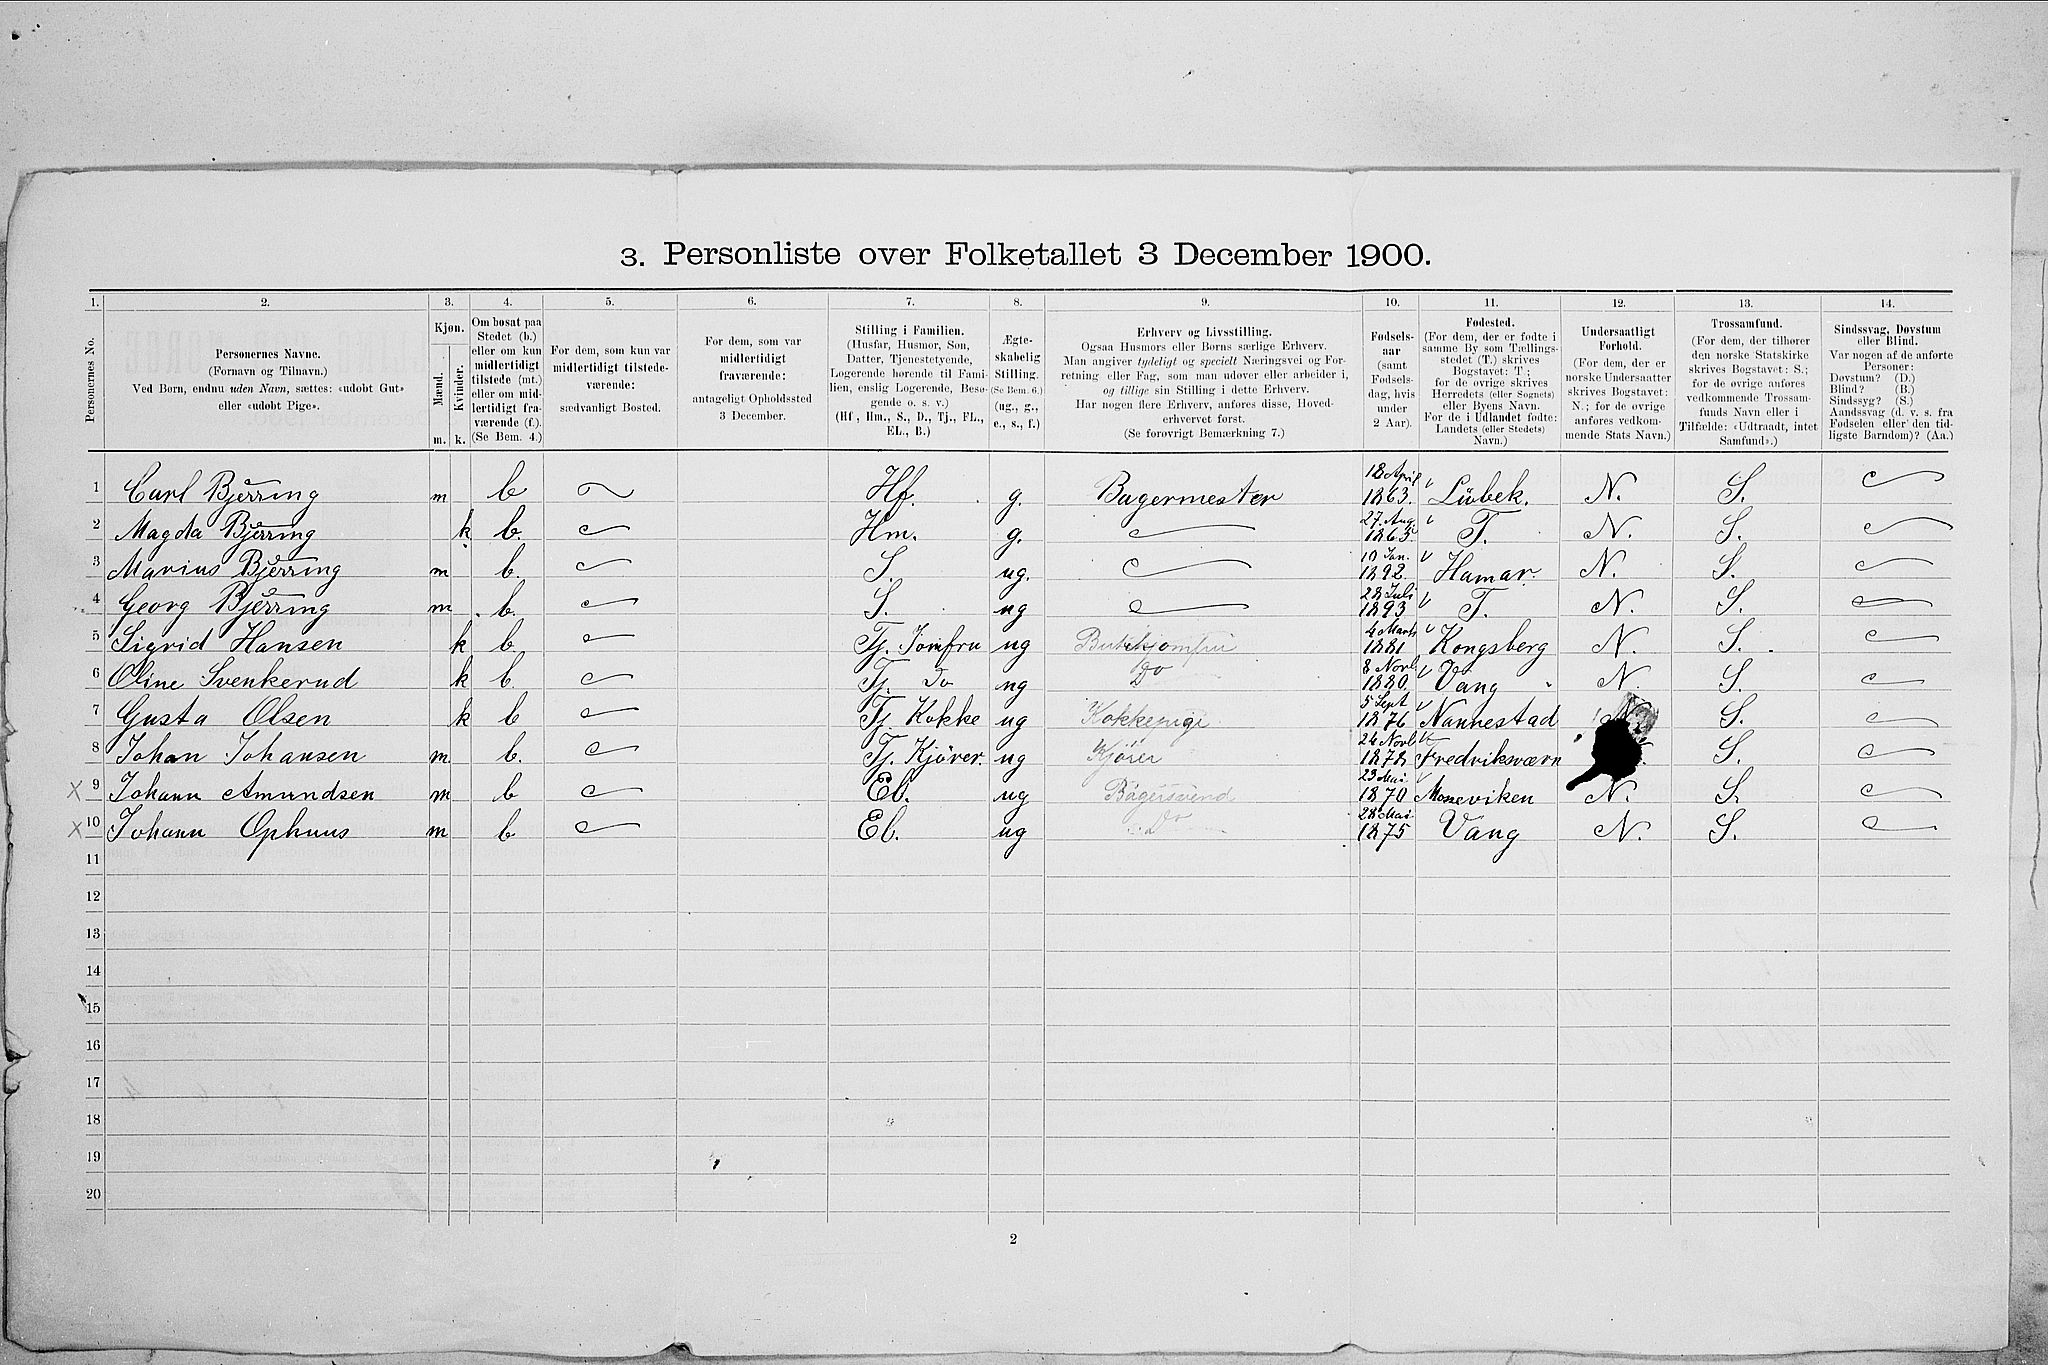 3. Personliste over Folketallet 3 December 1900.
1. 2. 3. 4. 5. 6. 7. 8. 9. 10. 11. 12. 13. 14.
Personernes No.
Personernes Navne.
(Fornavn og Tilnavn.)
Ved Børn, endnu uden Navn, sættes: «udøbt Gut»
eller «udøbt Pige».
Kjøn.
Mænd.
Kvinder.
m. k.
Om bosat paa
Stedet (b.)
eller om kun
midlertidigt
tilstede (mt.)
eller om mid-
lertidigt fra-
værende (f.).
(Se Bem. 4.)
For dem, som kun var
midlertidigt tilstede-
værende:
sædvanligt Bosted.
For dem, som var
midlertidigt
fraværende:
antageligt Opholdssted
3 December.
Stilling i Familien.
(Husfar, Husmor, Søn,
Datter, Tjenestetyende,
Logerende hørende til Fami-
lien, enslig Logerende, Besø-
gende o. s. v.)
(Hf., Hm., S., D., Tj., FL.,
EL., B.)
Ægte-
skabelig
Stilling.
(Se Bem. 6.)
(ug., g.,
e., s., f.)
Erhverv og Livsstilling.
Ogsaa Husmors eller Børns særlige Erhverv.
Man angiver tydeligt og specielt Næringsvei og For-
retning eller Fag, som man udøver eller arbeider i,
og tillige sin Stilling i dette Erhverv.
Har nogen flere Erhverv, anføres disse, Hoved-
erhvervet først.
(Se forøvrigt Bemærkning 7.)
Fødsels-
aar
(samt
Fødsels-
dag, hvis
under
2 Aar).
Fødested.
(For dem, der er fødte i
samme By som Tællings-
stedet (T.) skrives
Bogstavet: T;
for de øvrige skrives
Herredets (eller Sognets)
eller Byens Navn.
For de i Udlandet fødte:
Landets (eller Stedets)
Navn.)
Undersaatligt
Forhold.
(For dem, der er
norske Undersaatter
skrives Bogstavet:
N.; for de øvrige
anføres vedkom-
mende Stats Navn.)
Trossamfund.
(For dem, der tilhører
den norske Statskirke
skrives Bogstavet: S.;
for de øvrige anføres
vedkommende Trossam-
funds Navn eller i
Tilfælde: «Udtraadt, intet
Samfund».)
Sindssvag, Døvstum
eller Blind.
Var nogen af de anførte
Personer:
Døvstum? (D.)
Blind? (B.)
Sindssyg? (S.)
Aandssvag (d. v. s. fra
Fødselen eller den tid-
ligste Barndom)? (Aa.)
1 Carl Bjerring m b Hf. g. Bagermester 18 April 1863. Lübek. N. S.
2 Magda Bjerring k b. Hm. g. 27. Aug. 1863 T. N. S.
3 Marius Bjerring m b. S. ug. 10 Jan. 1892. Hamar. N. S.
4 Georg Bjerring m b. S. ug 28 Juli 1893 T. N. S.
5 Sigrid Hansen k b Tj. Jomfru ug Butikjomfru 4 Marts 1881 Kongsberg N. S.
6 Oline Svenkerud k b. Tj. Do ug Do 8 Novb 1880. Vang N. S.
7 Gusta Olsen k b Tj Kokke ug Kokkepige 5 Sept 1876 Nannestad N. S.
8 Johan Johansen m. b. Tj. Kjører. ug Kjører 24 Novb 1878 Fredriksværn S.
X 9 Johann Amundsen m b El. ug Bagersvend 23 Mai. 1870 Mosseviken N. S.
X 10 Johann Ophuus m b El. ug Do 28 Mai. 1875 Vang N. S.
11
12
13
14
15
16
17
18
19
20
2